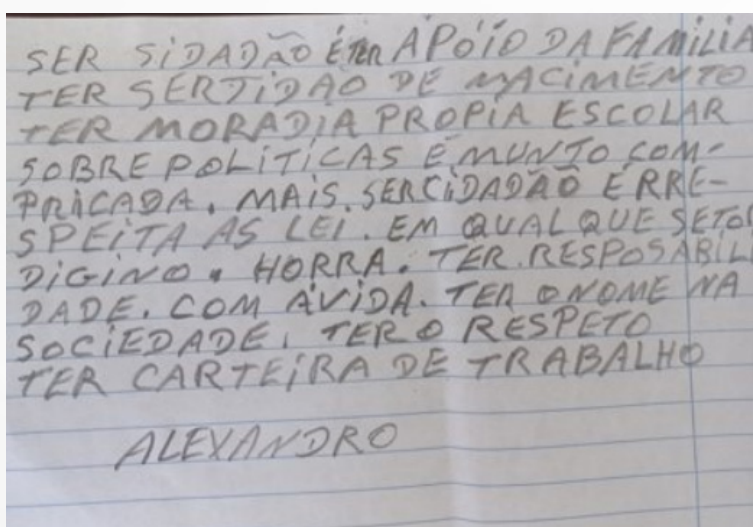 SER SIDADÃO É TER APÓIO DA FAMILIA
TER SERTIDÃO DE NACIMENTO
TER MORADIA PROPIA ESCOLAR
SOBRE POLÍTICAS É MUNTO COM-
PRICADA. MAIS. SER CIDADÃO É RRE-
SPEITA AS LEI. EM QUAL QUE SETOR
DIGINO. HORRA. TER. RESPOSABILI
DADE. COM AVIDA. TER O NOME NA
SOCIEDADE. TER O RESPETO
TER CARTEIRA DE TRABALHO
ALEXANDRO